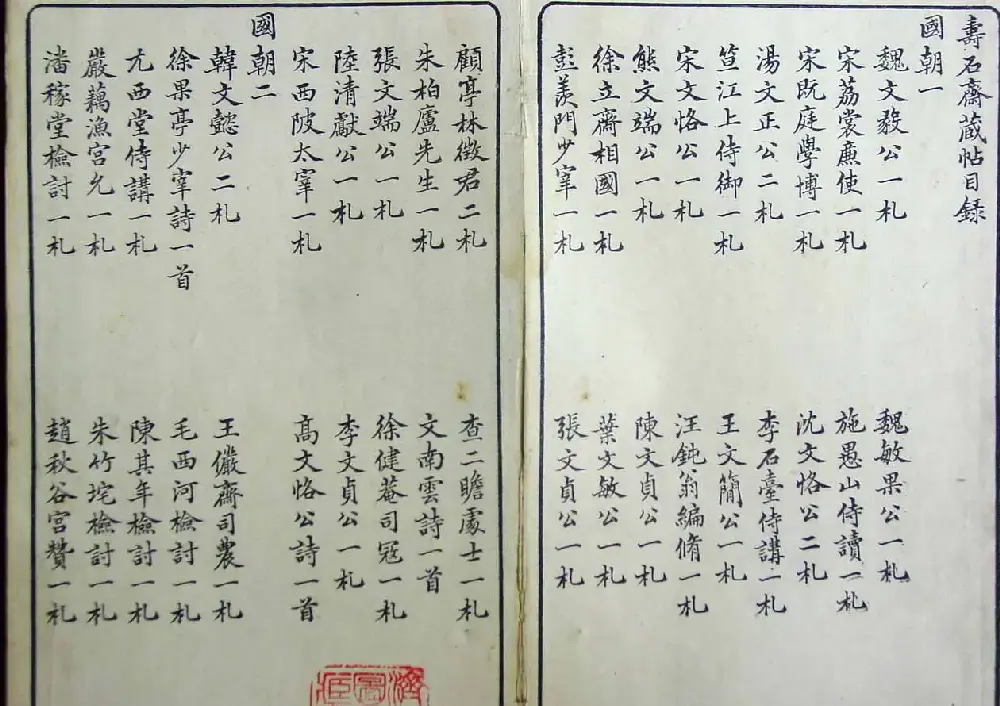 壽石齋藏帖目錄
國朝一
魏文毅公一札 魏敏果公一札
宋荔裳廉使一札 施愚山侍讀一札
宋既庭學博一札 沈文恪公二札
湯文正公二札 李石臺侍講一札
笪江上侍御一札 王文簡公一札
宋文恪公一札 汪鈍翁編脩一札
熊文端公一札 陳文貞公一札
徐立齋相國一札 葉文敏公一札
彭羡門少宰一札 張文貞公一札
顧亭林徵君二札 查二瞻處士一札
朱柏廬先生一札 文南雲詩一首
張文端公一札 徐健菴司冦一札
陸清獻公一札 李文貞公一札
宋西陂太宰一札 高文恪公詩一首
國朝二
韓文懿公二札 王儼齋司農一札
徐果亭少宰詩一首 毛西河檢討一札
尤西堂侍講一札 陳其年檢討一札
嚴藕漁宮允一札 朱竹垞檢討一札
潘稼堂檢討一札 趙秋谷宮贊一札